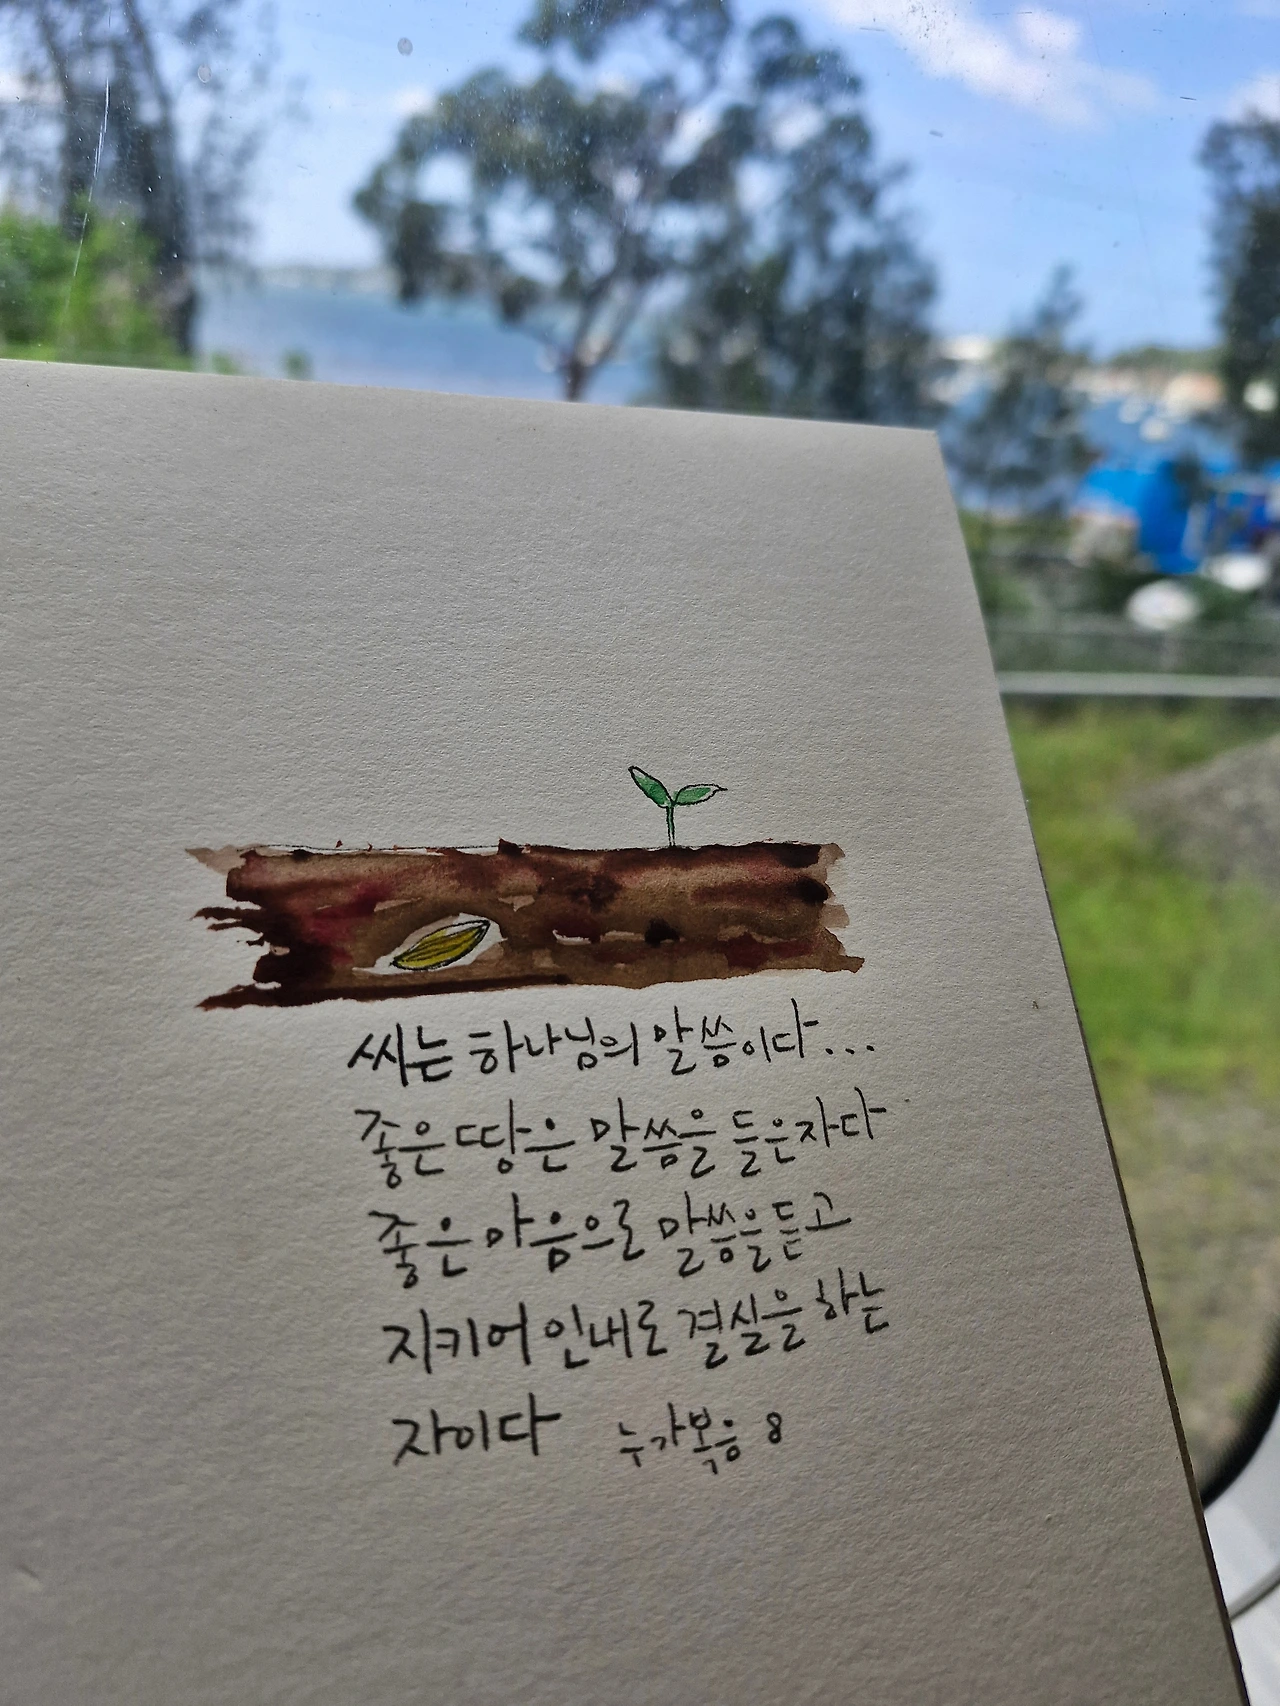 씨는 하나님의 말씀이다...
좋은 땅은 말씀을 들은자다
좋은 마음으로 말씀을 듣고
지키어 인내로 결실을 하는
자이다 누가복음 8